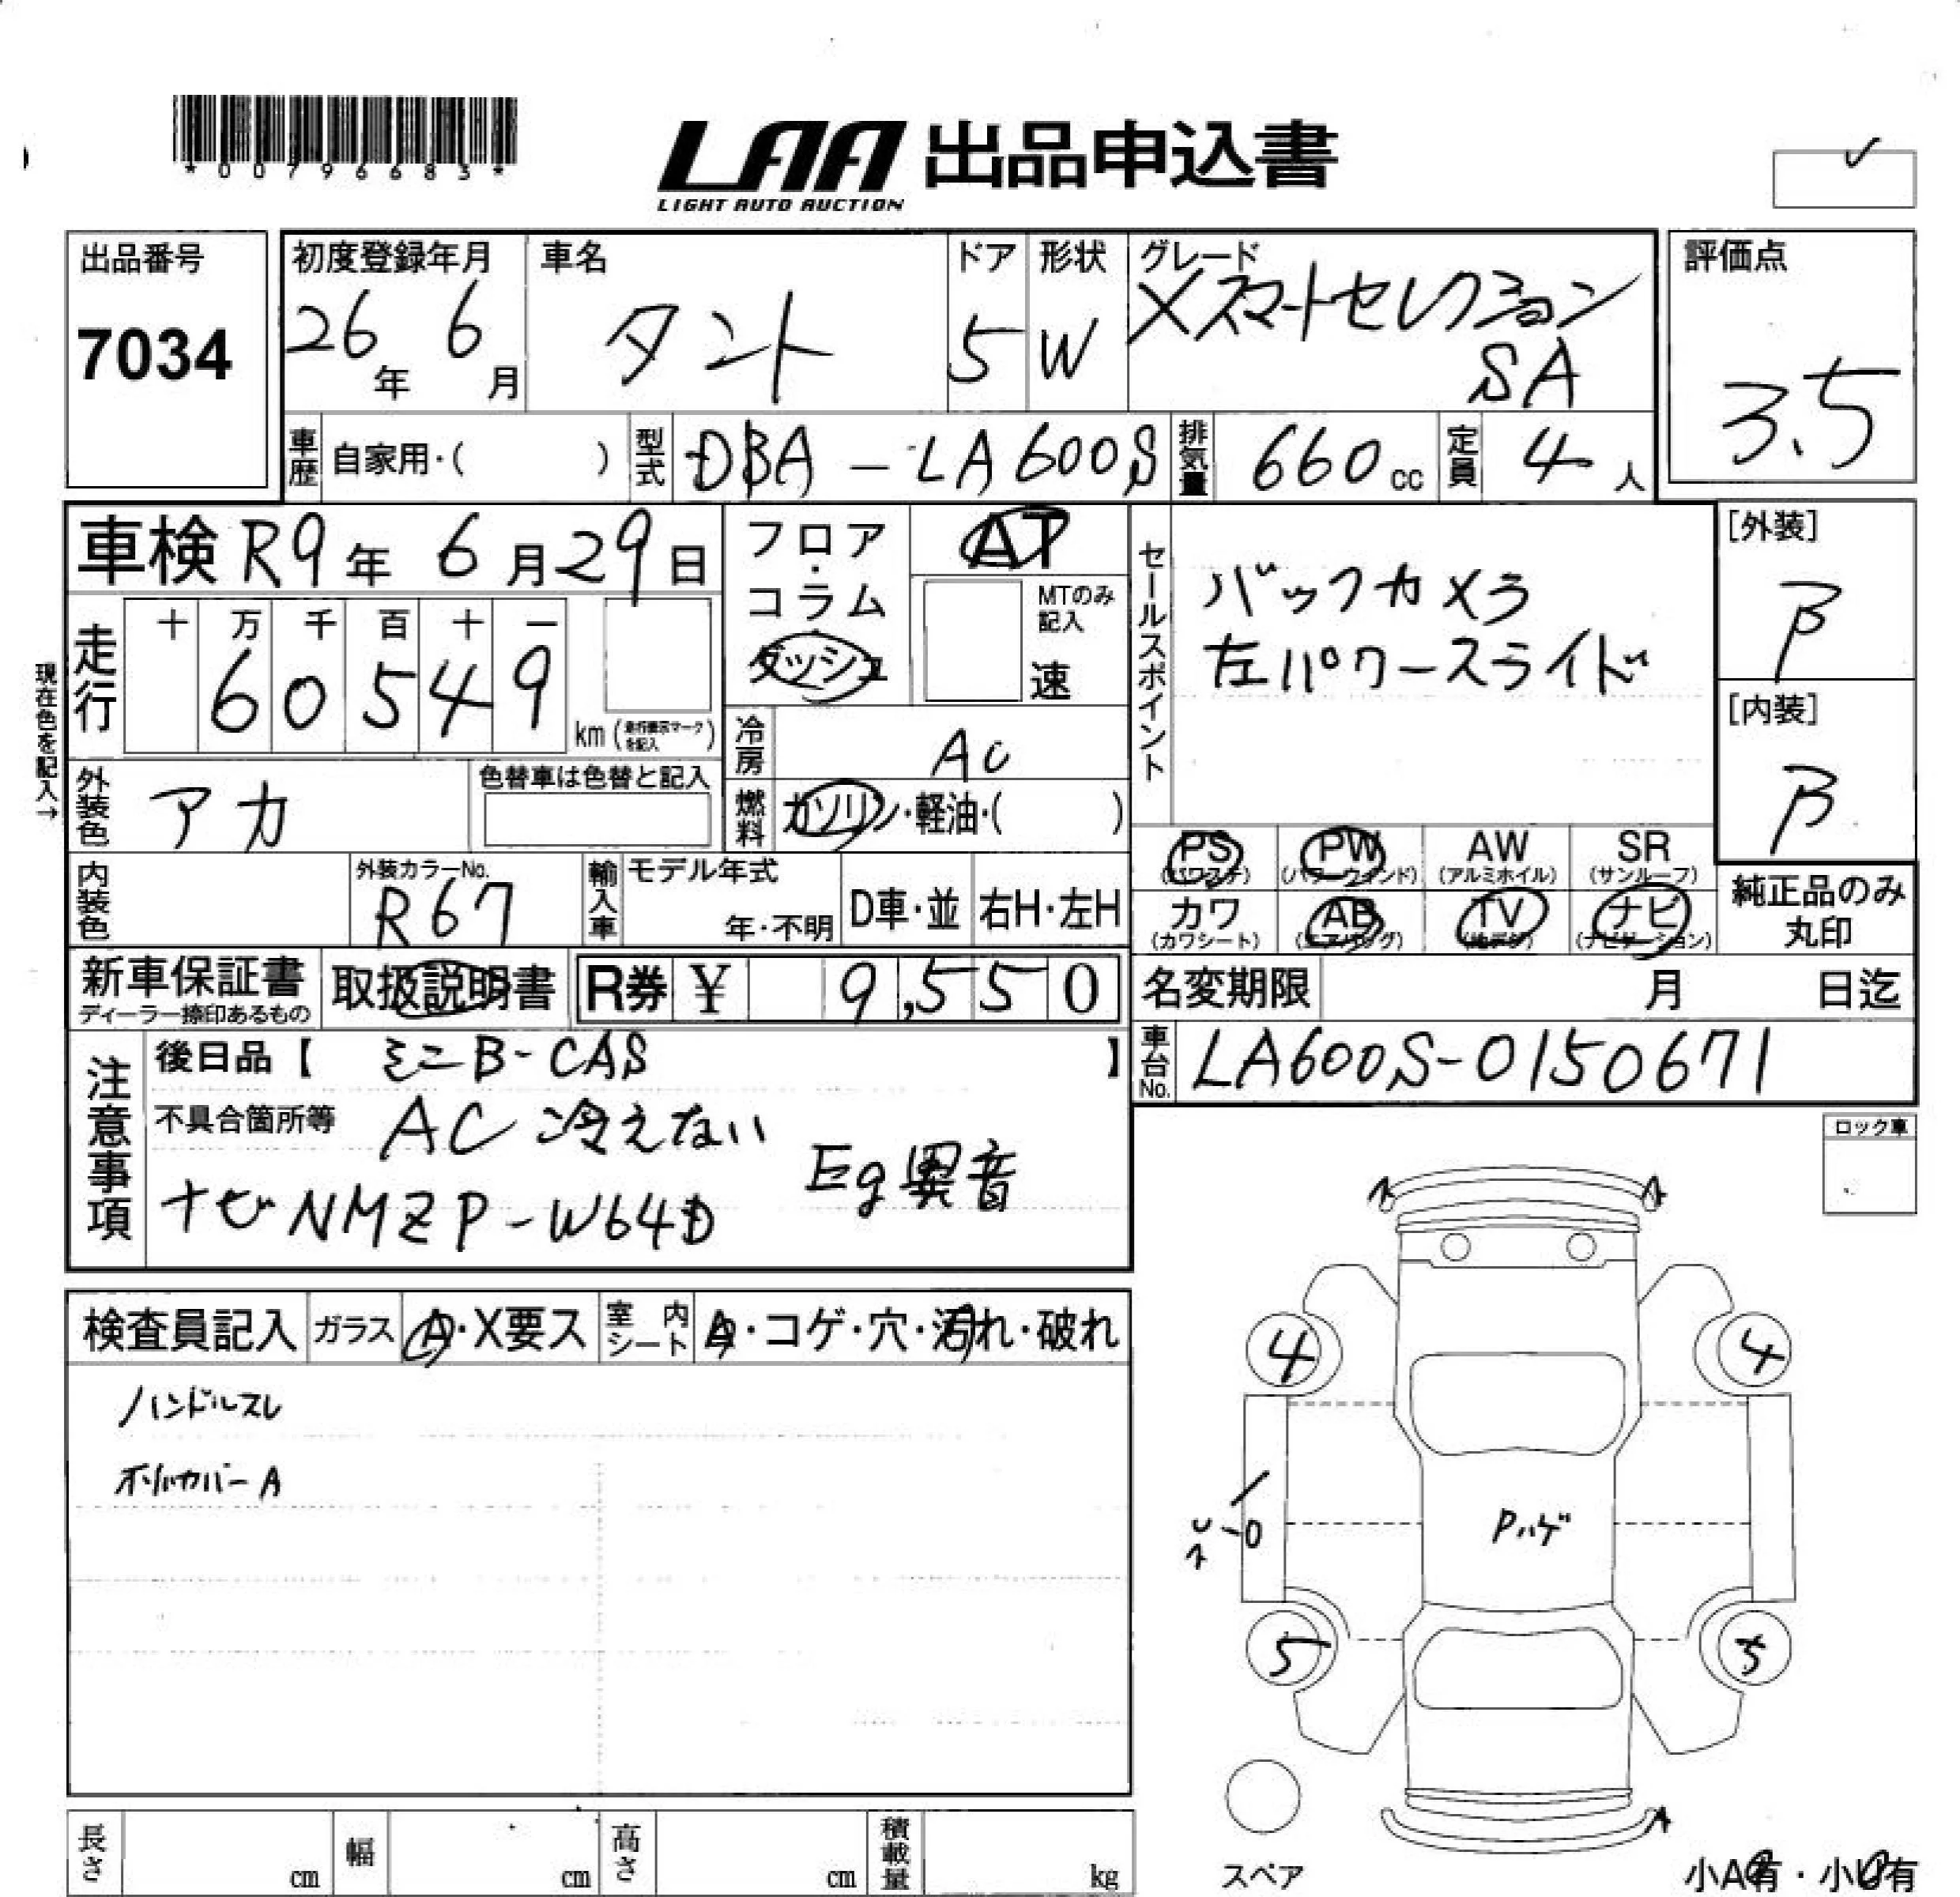 *00796683*
LAA 出品申込書
LIGHT AUTO AUCTION
出品番号
7034
初度登録年月
26年 6月
車名
タント
ドア
5
形状
W
グレード
Xスマートセレクション
SA
評価点
3.5
車歴 自家用・( )
型式 DBA-LA600S
排気量 660cc
定員 4人
車検 R9年 6月29日
フロア・コラム
ダッシュ
AT
MTのみ記入
速
セールスポイント
バックカメラ
左パワースライド
[外装]
β
[内装]
β
現在色を記入→
走行
十 万 千 百 十 一
6 0 5 4 9
km (走行表示マークを記入)
冷房 AC
外装色 アカ
色替車は色替と記入
燃料 ガソリン・軽油・( )
PS PW AW SR
(パワステ) (パワーウィンド) (アルミホイル) (サンルーフ)
カワ AB TV ナビ
(カワシート) (エアバッグ) (地デジ) (ナビゲーション)
純正品のみ
丸印
内装色
外装カラーNo.
R67
輸入車
モデル年式
年・不明
D車・並
右H・左H
新車保証書
ディーラー捺印あるもの
取扱説明書
R券 ¥ 9,550
名変期限 月 日迄
車台No. LA600S-0150671
注意事項
後日品【 ミニB-CAS 】
不具合箇所等 AC 冷えない
Eg異音
ナビNMZP-W64D
ロック車
検査員記入
ガラス A・X要ス
室内シート A・コゲ・穴・汚れ・破れ
ハンドルスレ
A
A
A
4 4
Pハゲ
5 5
A
スペア
小A有・小U有
長さ cm
幅 cm
高さ cm
積載量 kg